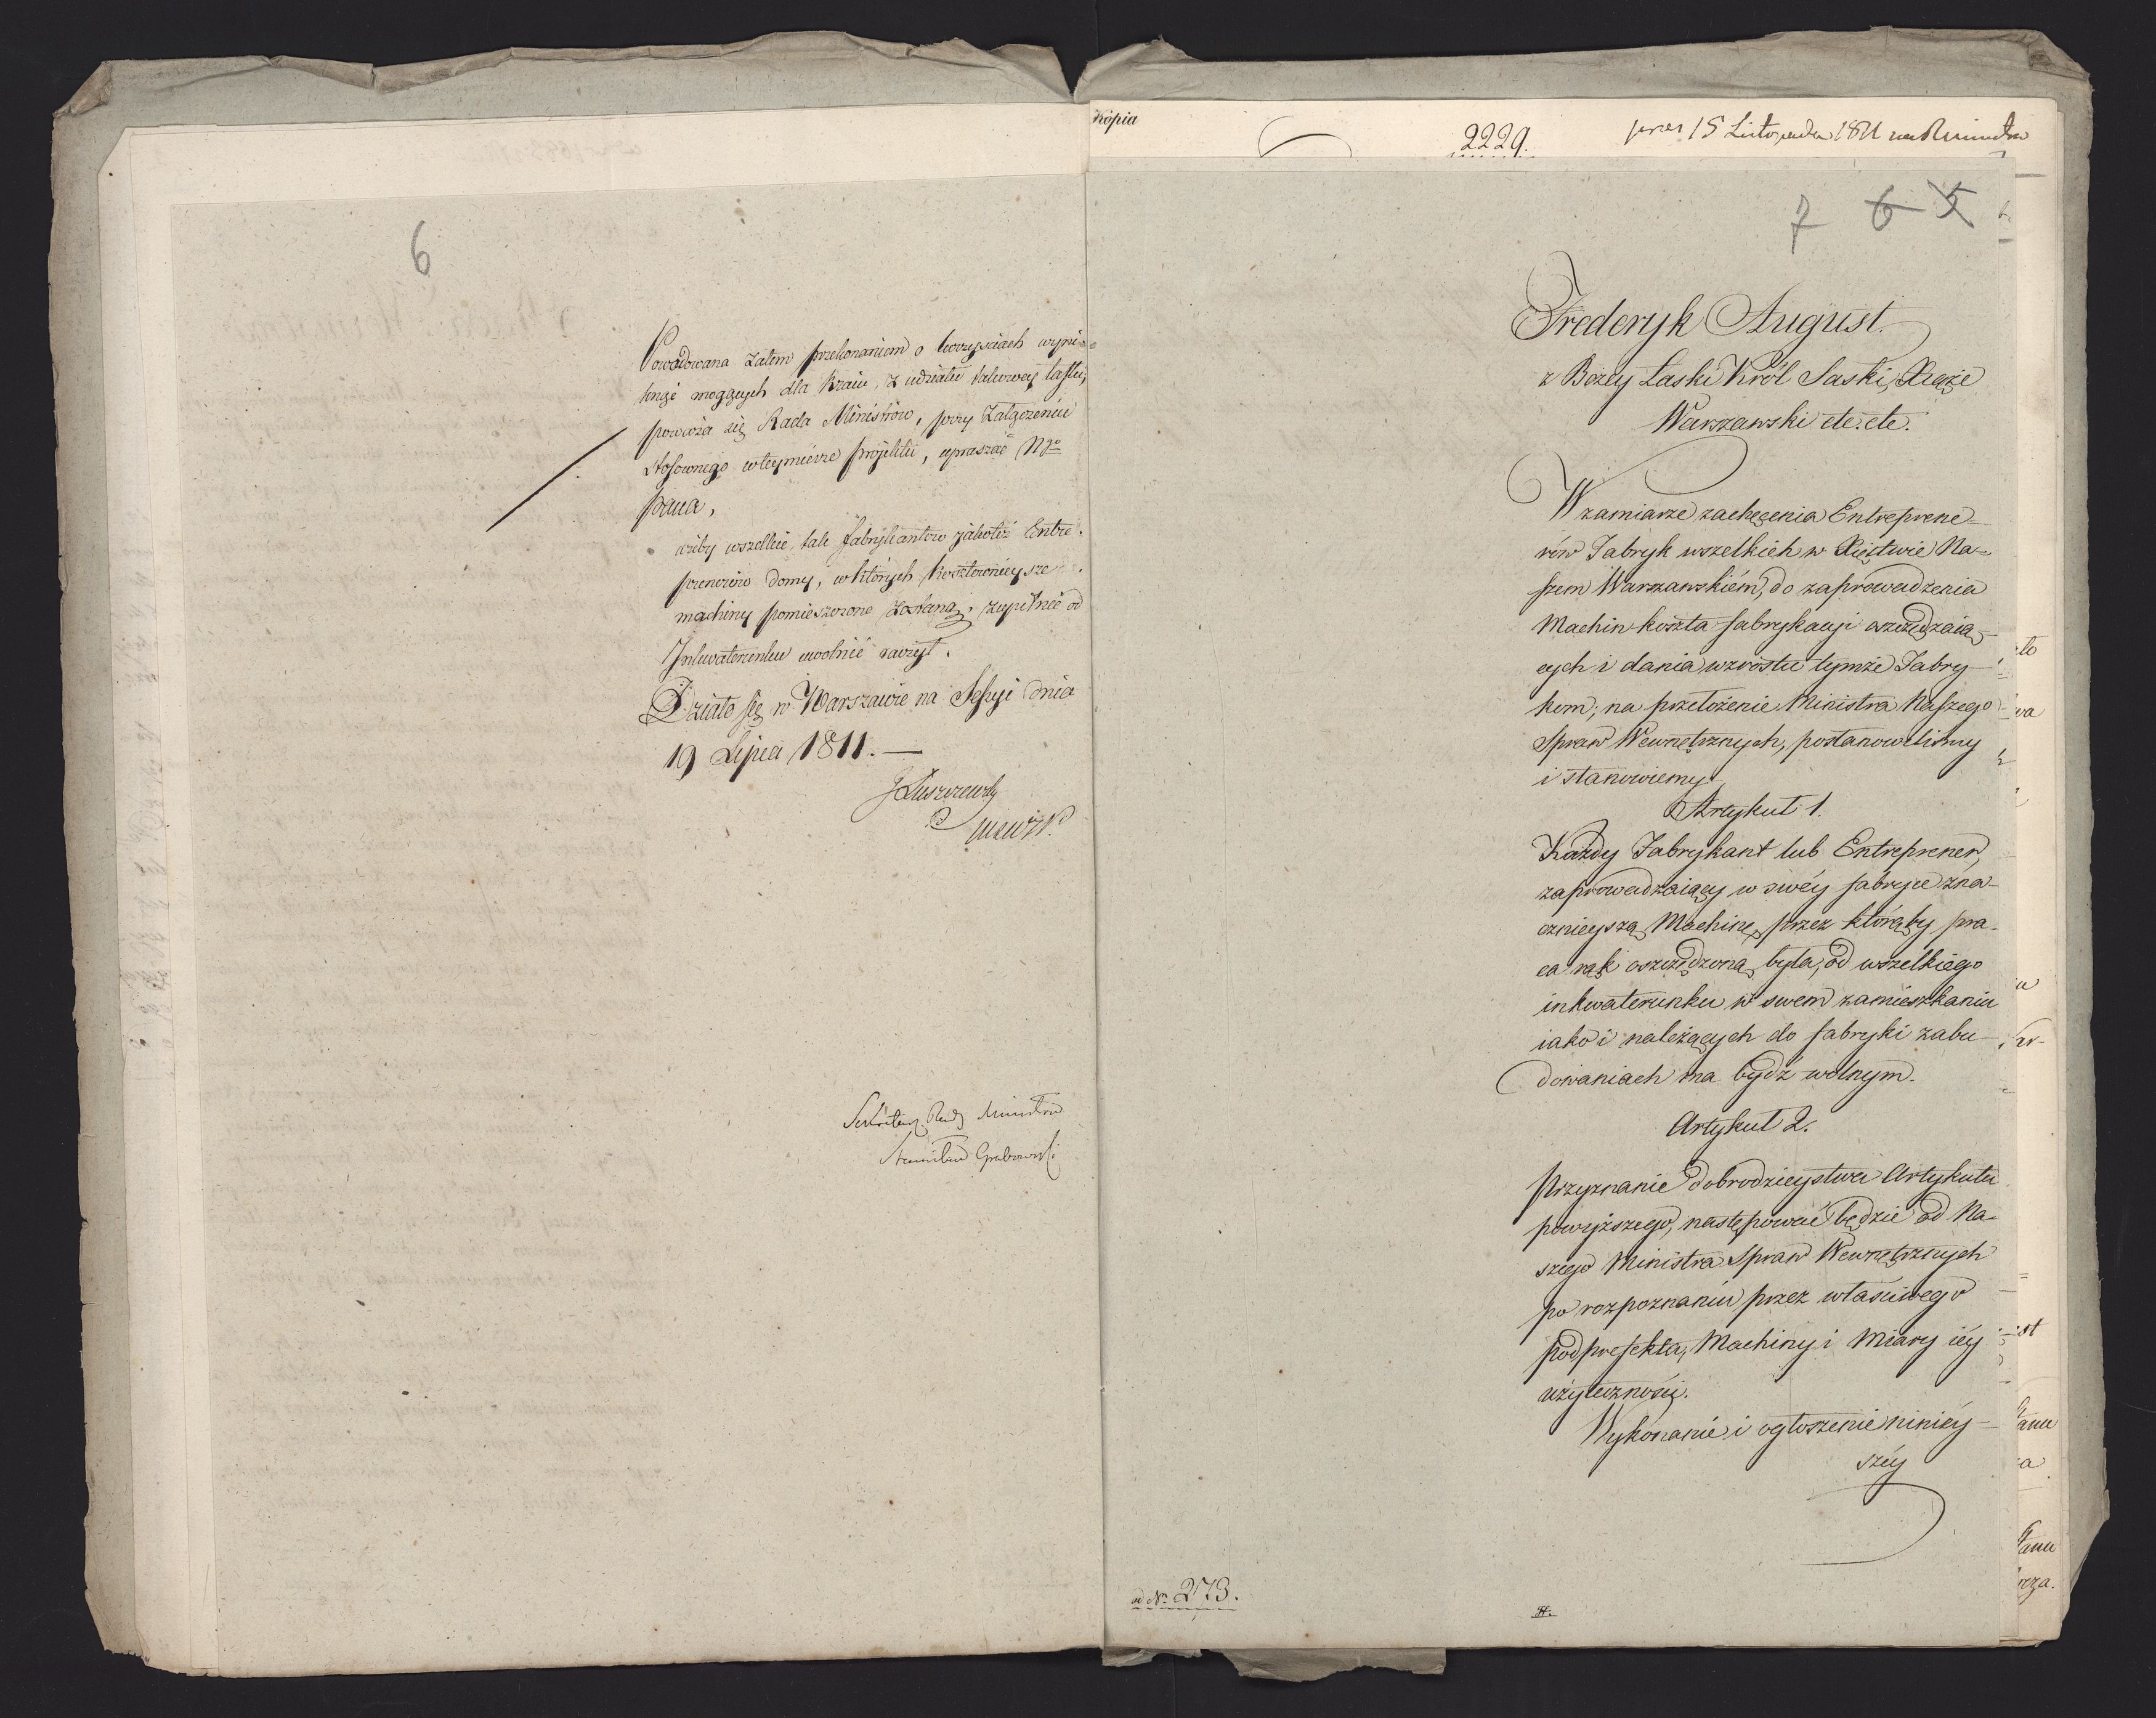 6
Powodowana zatem przekonaniem o korzyściach wyni-
knąć mogących dla Kraiu, z udziału takowey łaski,
poważa się Rada Ministrów, przy załączeniu
stosownego wteymierze projektu, upraszać Ngo
Pana,
ażeby wszelkie, tak Fabrykantów jakoteż Entre-
prenerów domy, w których kosztownieysze
machiny pomieszczone zostaną, zupełnie od
Inkwaterunku uwolnić raczył.
Działo się w Warszawie na Sessyi dnia
19 Lipca 1811. —
J Łuszczewsky
Sekretarz Rady Ministrów
Stanisław Grabowski
Kopia
2229.
15 Listopada 1811
7 6 5
Frederyk August.
z Bożey Łaski Król Saski, Xiąże
Warszawski etc. etc.
W zamiarze zachęcenia Entreprene-
rów Fabryk wszelkich w Xięstwie Na-
szem Warszawskiém, do zaprowadzenia
Machin koszta fabrykacyi oszczędzaią-
cych i dania wzrostu tymże Fabry-
kom, na przełożenie Ministra Naszego
Spraw Wewnętrznych, postanowiliśmy
i stanowiemy
Artykuł 1.
Każdy Fabrykant lub Entreprener,
zaprowadzaiący w swéy fabryce zna-
cznieyszą Machinę, przez którąby pra-
ca rąk oszczędzoną była, od wszelkiego
inkwaterunku w swem zamieszkaniu
iako i należących do fabryki zabu-
dowaniach ma bydź wolnym.
Artykuł 2.
Przyznanie dobrodzieystwa Artykułu
powyższego, następować będzie od Na-
szego Ministra Spraw Wewnętrznych
po rozpoznaniu przez właściwego
podprefekta, Machiny i Miary iéy
użyteczności.
Wykonanie i ogłoszenie ninieéy-
széy
ad No 273.